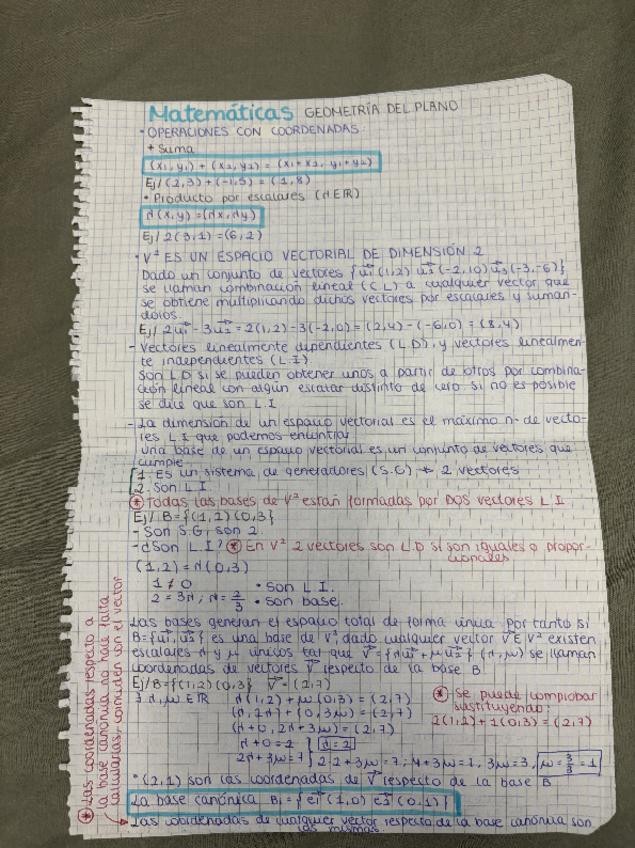 Matemáticas GEOMETRÍA DEL PLANO
• OPERACIONES CON COORDENADAS
+ Suma
(x₁, y₁) + (x₂, y₂) = (x₁+x₂, y₁+y₂)
Ej/ (2,3)+(-1,5) = (1,8)
• Producto por escalares (λ∈ℝ)
λ(x,y) = (λx, λy)
Ej/ 2(3,1) = (6,2)
• V² ES UN ESPACIO VECTORIAL DE DIMENSIÓN 2
Dado un conjunto de vectores {u₁(1,2) u₂(-2,10) u₃(-3,-6)}
se llaman combinación lineal (C.L) a cualquier vector que
se obtiene multiplicando dichos vectores por escalares y suman-
dolos.
Ej/ 2u₁ - 3u₂ = 2(1,2) - 3(-2,0) = (2,4) - (-6,0) = (8,4)
- Vectores linealmente dependientes (L.D), y vectores linealmen-
te independientes (L.I).
Son L.D si se pueden obtener unos a partir de otros por combina-
ción lineal con algún escalar distinto de cero si no es posible
se dice que son L.I
- La dimensión de un espacio vectorial es el máximo nº de vecto-
res L.I que podemos encontrar
Una base de un espacio vectorial es un conjunto de vectores que
cumple
1. Es un sistema de generadores (S.G) → 2 vectores
2. Son L.I
* Todas las bases de V² están formadas por DOS vectores L.I
Ej/ B={(1,2) (0,3)}
- Son S.G, son 2.
- ¿Son L.I? * En V² 2 vectores son L.D si son iguales o propor-
cionales
(1,2) = λ(0,3)
1 ≠ 0 • Son L.I.
2 = 3λ ; λ = 2/3 • Son base.
Las bases generan el espacio total de forma única por tanto si
B={u₁, u₂} es una base de V² dado cualquier vector v ∈ V² existen
escalares λ y μ únicos tal que v = {λu₁ + μu₂} (λ, μ) se llaman
coordenadas de vectores v respecto de la base B
Ej/ B={(1,2) (0,3)} v = (2,7)
∃ λ, μ ∈ ℝ λ(1,2) + μ(0,3) = (2,7)
(λ, 2λ) + (0, 3μ) = (2,7)
(λ+0, 2λ+3μ) = (2,7)
λ+0 = 2 } λ=2
2λ+3μ = 7 } 2·2+3μ = 7 ; 4+3μ = 7, 3μ=3, μ = 3/3 = 1
* Se puede comprobar
sustituyendo:
2(1,2)+1(0,3) = (2,7)
• (2,1) son las coordenadas de v respecto de la base B
La base canónica B₁ = {e₁(1,0) e₂(0,1)}
→ Las coordenadas de cualquier vector respecto de la base canónica son
las mismas.
* Las coordenadas respecto a
la base canónica no hace falta
calcularlas, coinciden con el vector